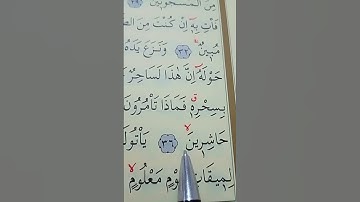 مِنَ الْمَسْجُونِينَ ﴿٢٩﴾
فَأْتِ بِهِ إِنْ كُنْتَ مِنَ الصَّ
مُبِينٌ ﴿٣٢﴾ وَنَزَعَ يَدَهُ
حَوْلَهُ إِنَّ هَٰذَا لَسَاحِرٌ
بِسِحْرِهِ فَمَاذَا تَأْمُرُونَ
حَاشِرِينَ ﴿٣٦﴾ يَأْتُوكَ
لِمِيقَاتِ يَوْمٍ مَعْلُومٍ